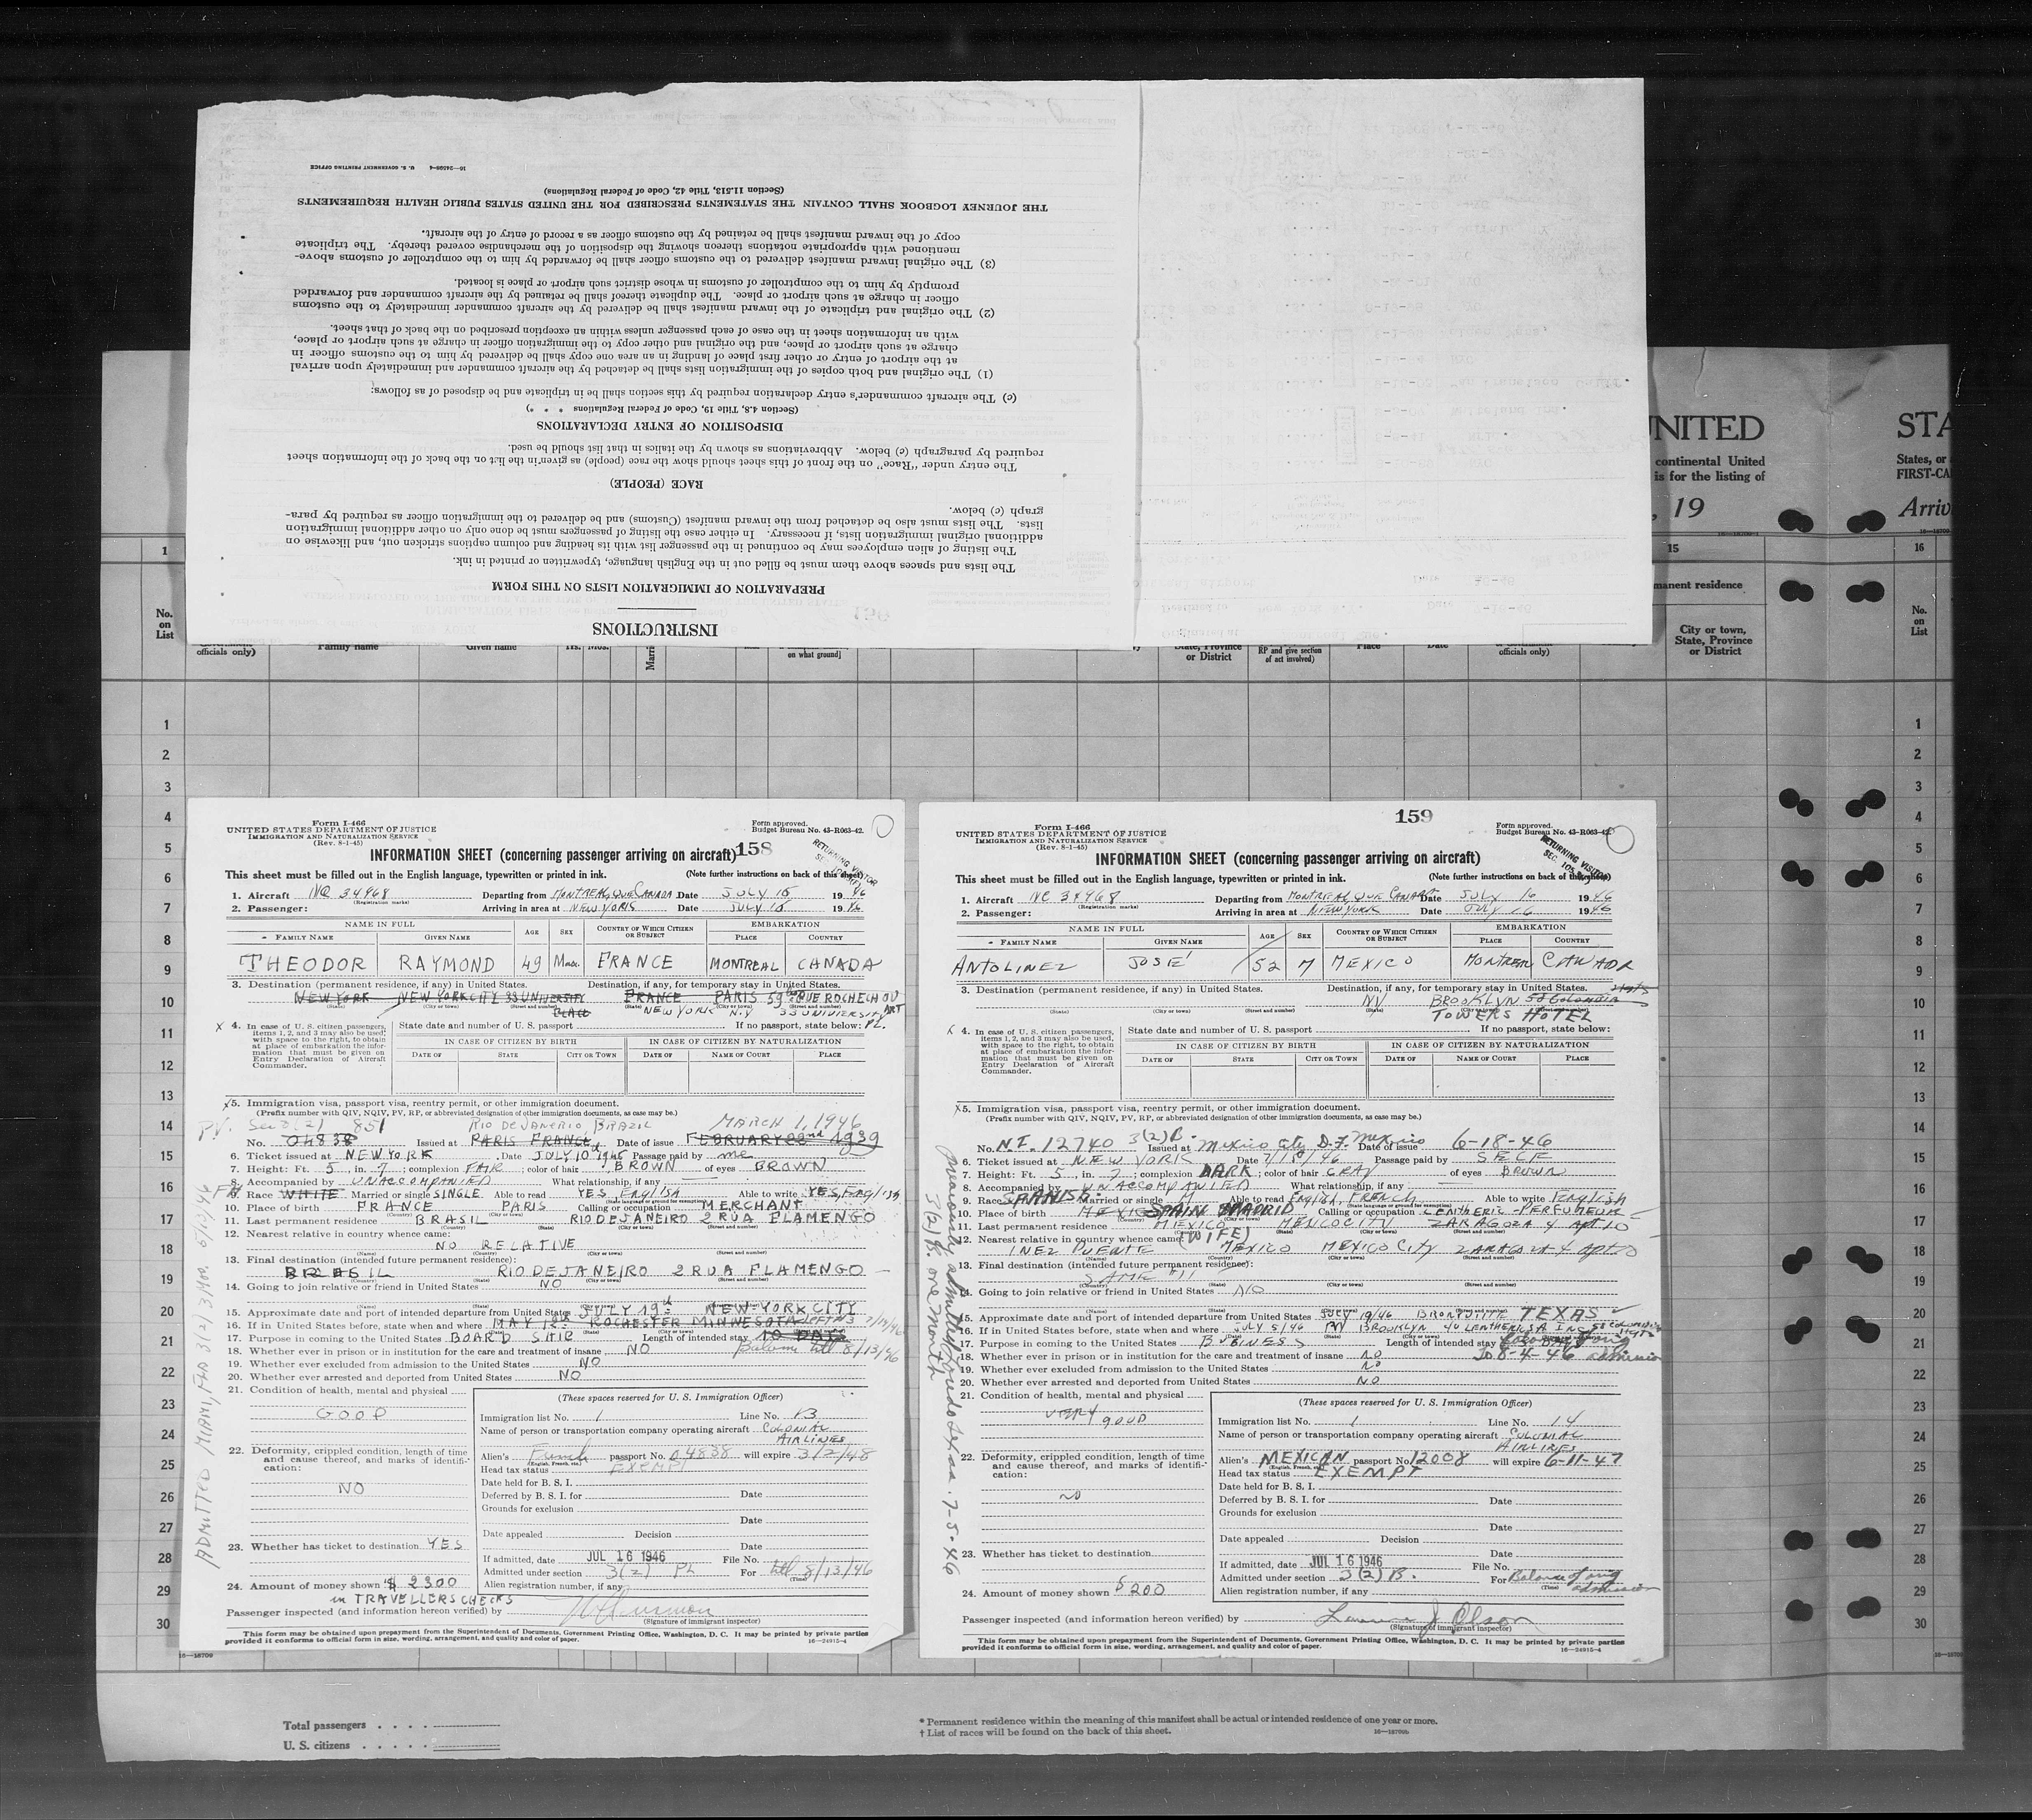 INSTRUCTIONS
PREPARATION OF IMMIGRATION LISTS ON THIS FORM
The lists and spaces above them must be filled out in the English language, typewritten or printed in ink.
The listing of alien employees may be continued in the passenger list with its heading and column captions stricken out, and likewise on
additional original immigration lists, if necessary. In either case the listing of passengers must be done only on other additional immigration
lists. The lists must also be detached from the inward manifest (Customs) and be delivered to the immigration officer as required by para-
graph (c) below.
RACE (PEOPLE)
The entry under "Race" on the front of this sheet should show the race (people) as given in the list on the back of the information sheet
required by paragraph (c) below. Abbreviations as shown by the italics in that list should be used.
DISPOSITION OF ENTRY DECLARATIONS
(Section 4.8, Title 19, Code of Federal Regulations * * *)
(c) The aircraft commander's entry declaration required by this section shall be in triplicate and be disposed of as follows:
(1) The original and both copies of the immigration lists shall be detached by the aircraft commander and immediately upon arrival
at the airport of entry or other first place of landing in an area one copy shall be delivered by him to the customs officer in
charge at such airport or place, and the original and other copy to the immigration officer in charge at such airport or place,
with an information sheet in the case of each passenger unless within an exception prescribed on the back of that sheet.
(2) The original and triplicate of the inward manifest shall be delivered by the aircraft commander immediately to the customs
officer in charge at such airport or place. The duplicate thereof shall be retained by the aircraft commander and forwarded
promptly by him to the comptroller of customs in whose district such airport or place is located.
(3) The original inward manifest delivered to the customs officer shall be forwarded by him to the comptroller of customs above-
mentioned with appropriate notations thereon showing the disposition of the merchandise covered thereby. The triplicate
copy of the inward manifest shall be retained by the customs officer as a record of entry of the aircraft.
THE JOURNEY LOGBOOK SHALL CONTAIN THE STATEMENTS PRESCRIBED FOR THE UNITED STATES PUBLIC HEALTH REQUIREMENTS
(Section 11.513, Title 42, Code of Federal Regulations)
16—24596-4 U. S. GOVERNMENT PRINTING OFFICE
UNITED
continental United
is for the listing of
, 19
15
manent residence
City or town,
State, Province
or District
STA
States, or
FIRST-CA
Arriv
16
No.
on
List
1
No.
on
List
officials only)
Family name
Given name
on what ground]
State, Province
or District
RP and give section
of act involved)
Place
Date
officials only)
1
2
3
4
5
6
7
8
9
10
11
12
13
14
15
16
17
18
19
20
21
22
23
24
25
26
27
28
29
30
Form I-466
UNITED STATES DEPARTMENT OF JUSTICE
IMMIGRATION AND NATURALIZATION SERVICE
(Rev. 8-1-45)
Form approved.
Budget Bureau No. 43-R063-42.
158
INFORMATION SHEET (concerning passenger arriving on aircraft)
RETURNING VISITOR
This sheet must be filled out in the English language, typewritten or printed in ink. (Note further instructions on back of this sheet)
1. Aircraft NC 34968 Departing from MONTREAL, QUE CANADA Date JULY 16 1946
(Registration marks)
2. Passenger: Arriving in area at NEW YORK Date JULY 16 1946
NAME IN FULL AGE SEX COUNTRY OF WHICH CITIZEN OR SUBJECT EMBARKATION
FAMILY NAME GIVEN NAME PLACE COUNTRY
THEODOR RAYMOND 49 Male FRANCE MONTREAL CANADA
3. Destination (permanent residence, if any) in United States. Destination, if any, for temporary stay in United States.
NEW YORK NEW YORK CITY 33 UNIVERSITY PLACE FRANCE PARIS 59 RUE ROCHECHOUART
(State) (City or town) (Street and number) (State) (City or town) (Street and number)
NEW YORK N.Y 33 UNIVERSITY PL.
x 4. In case of U. S. citizen passengers,
items 1, 2, and 3 may also be used,
with space to the right, to obtain
at place of embarkation the infor-
mation that must be given on
Entry Declaration of Aircraft
Commander.
State date and number of U. S. passport If no passport, state below:
IN CASE OF CITIZEN BY BIRTH IN CASE OF CITIZEN BY NATURALIZATION
DATE OF STATE CITY OR TOWN DATE OF NAME OF COURT PLACE
x5. Immigration visa, passport visa, reentry permit, or other immigration document.
(Prefix number with QIV, NQIV, PV, RP, or abbreviated designation of other immigration documents, as case may be.)
PV. Sec 3(2) 851 RIO DE JANERIO, BRAZIL MARCH 1, 1946
No. 04838 Issued at PARIS FRANCE, Date of issue FEBRUARY 22nd 1939
6. Ticket issued at NEW YORK Date JULY 10th 1946 Passage paid by me
7. Height: Ft. 5, in. 7; complexion FAIR; color of hair BROWN of eyes BROWN
8. Accompanied by UNACCOMPANIED What relationship, if any
FR 9. Race WHITE Married or single SINGLE Able to read YES, English Able to write YES, English
10. Place of birth FRANCE PARIS Calling or occupation MERCHANT
11. Last permanent residence BRASIL RIO DE JANEIRO 2 RUA FLAMENGO
(Country) (State) (City or town) (Street and number)
12. Nearest relative in country whence came:
NO RELATIVE
(Name) (Country) (City or town) (Street and number)
13. Final destination (intended future permanent residence):
BRASIL RIO DE JANEIRO 2 RUA FLAMENGO
(Country) (State) (City or town) (Street and number)
14. Going to join relative or friend in United States NO
15. Approximate date and port of intended departure from United States JULY 19th NEW YORK CITY
16. If in United States before, state when and where MAY 12th ROCHESTER MINNESOTA
17. Purpose in coming to the United States BOARD SHIP Length of intended stay 10 DAYS
18. Whether ever in prison or in institution for the care and treatment of insane NO Balance till 8/13/46
19. Whether ever excluded from admission to the United States NO
20. Whether ever arrested and deported from United States NO
21. Condition of health, mental and physical
GOOD
22. Deformity, crippled condition, length of time
and cause thereof, and marks of identifi-
cation:
NO
23. Whether has ticket to destination YES
24. Amount of money shown $ 2300
in TRAVELLERS CHECKS
(These spaces reserved for U. S. Immigration Officer)
Immigration list No. 1 Line No. 13
Name of person or transportation company operating aircraft COLONIAL AIRLINES
Alien's French passport No. 04838 will expire 3/2/48
(English, French, etc.)
Head tax status EXEMPT
Date held for B. S. I.
Deferred by B. S. I. for Date
Grounds for exclusion
Date
Date appealed Decision
Date
If admitted, date JUL 16 1946 File No.
Admitted under section 3(2) PL For till 8/13/46
(Time)
Alien registration number, if any
Passenger inspected (and information hereon verified) by
(Signature of immigrant inspector)
This form may be obtained upon prepayment from the Superintendent of Documents, Government Printing Office, Washington, D. C. It may be printed by private parties
provided it conforms to official form in size, wording, arrangement, and quality and color of paper. 16—24915-4
ADMITTED MIAMI, FLA 3(2) 3 Mos. 5/13/46
16—18709
Form I-466
UNITED STATES DEPARTMENT OF JUSTICE
IMMIGRATION AND NATURALIZATION SERVICE
(Rev. 8-1-45)
159
Form approved.
Budget Bureau No. 43-R063-42.
INFORMATION SHEET (concerning passenger arriving on aircraft)
RETURNING VISITOR
This sheet must be filled out in the English language, typewritten or printed in ink. (Note further instructions on back of this sheet)
1. Aircraft NC 34968 Departing from MONTREAL QUE CANADA Date JULY 16 1946
(Registration marks)
2. Passenger: Arriving in area at NEW YORK Date JULY 16 1946
NAME IN FULL AGE SEX COUNTRY OF WHICH CITIZEN OR SUBJECT EMBARKATION
FAMILY NAME GIVEN NAME PLACE COUNTRY
ANTOLINEZ JOSE 52 M MEXICO MONTREAL CANADA
3. Destination (permanent residence, if any) in United States. Destination, if any, for temporary stay in United States.
NY BROOKLYN 50 Columbia
(State) (City or town) (Street and number) (State) (City or town) (Street and number)
TOWERS HOTEL
x 4. In case of U. S. citizen passengers,
items 1, 2, and 3 may also be used,
with space to the right, to obtain
at place of embarkation the infor-
mation that must be given on
Entry Declaration of Aircraft
Commander.
State date and number of U. S. passport If no passport, state below:
IN CASE OF CITIZEN BY BIRTH IN CASE OF CITIZEN BY NATURALIZATION
DATE OF STATE CITY OR TOWN DATE OF NAME OF COURT PLACE
x5. Immigration visa, passport visa, reentry permit, or other immigration document.
(Prefix number with QIV, NQIV, PV, RP, or abbreviated designation of other immigration documents, as case may be.)
No. N.I. 12740 3(2)B. Issued at Mexico City D.F. Mexico Date of issue 6-18-46
6. Ticket issued at NEW YORK Date 7/15/46 Passage paid by SELF
7. Height: Ft. 5, in. 7; complexion DARK; color of hair GRAY of eyes BROWN
8. Accompanied by UNACCOMPANIED What relationship, if any
9. Race SPANISH. Married or single M Able to read English, FRENCH Able to write English
10. Place of birth MEXICO SPAIN MADRID Calling or occupation LENTHERIC - PERFUMEUR
11. Last permanent residence MEXICO MEXICO CITY ZARAGOZA 4 Apt. 10
12. Nearest relative in country whence came: (WIFE)
INEZ PUENTE MEXICO MEXICO CITY ZARAGOZA 4 Apt. 10
(Name) (Country) (City or town) (Street and number)
13. Final destination (intended future permanent residence):
SAME #11
(Country) (State) (City or town) (Street and number)
14. Going to join relative or friend in United States NO
15. Approximate date and port of intended departure from United States JULY 19/46 TEXAS
16. If in United States before, state when and where JULY 5/46 NY BROOKLYN
17. Purpose in coming to the United States BUSINESS Length of intended stay
18. Whether ever in prison or in institution for the care and treatment of insane NO To 8-4-46 admission
19. Whether ever excluded from admission to the United States NO
20. Whether ever arrested and deported from United States NO
21. Condition of health, mental and physical
VERY GOOD
22. Deformity, crippled condition, length of time
and cause thereof, and marks of identifi-
cation:
NO
23. Whether has ticket to destination
24. Amount of money shown $200
(These spaces reserved for U. S. Immigration Officer)
Immigration list No. 1 Line No. 14
Name of person or transportation company operating aircraft COLONIAL AIRLINES
Alien's MEXICAN passport No. 12008 will expire 6-11-47
(English, French, etc.)
Head tax status EXEMPT
Date held for B. S. I.
Deferred by B. S. I. for Date
Grounds for exclusion
Date
Date appealed Decision
Date
If admitted, date JUL 16 1946 File No.
Admitted under section 3(2) B. For Balance of orig admission
(Time)
Alien registration number, if any
Passenger inspected (and information hereon verified) by Lawrence J. Olson
(Signature of immigrant inspector)
This form may be obtained upon prepayment from the Superintendent of Documents, Government Printing Office, Washington, D. C. It may be printed by private parties
provided it conforms to official form in size, wording, arrangement, and quality and color of paper. 16—24915-4
previously admitted Laredo Texas. 7-5-46
3(2)B. one month
1
2
3
4
5
6
7
8
9
10
11
12
13
14
15
16
17
18
19
20
21
22
23
24
25
26
27
28
29
30
Total passengers . . . .
U. S. citizens . . . . .
* Permanent residence within the meaning of this manifest shall be actual or intended residence of one year or more.
† List of races will be found on the back of this sheet. 16—18709b